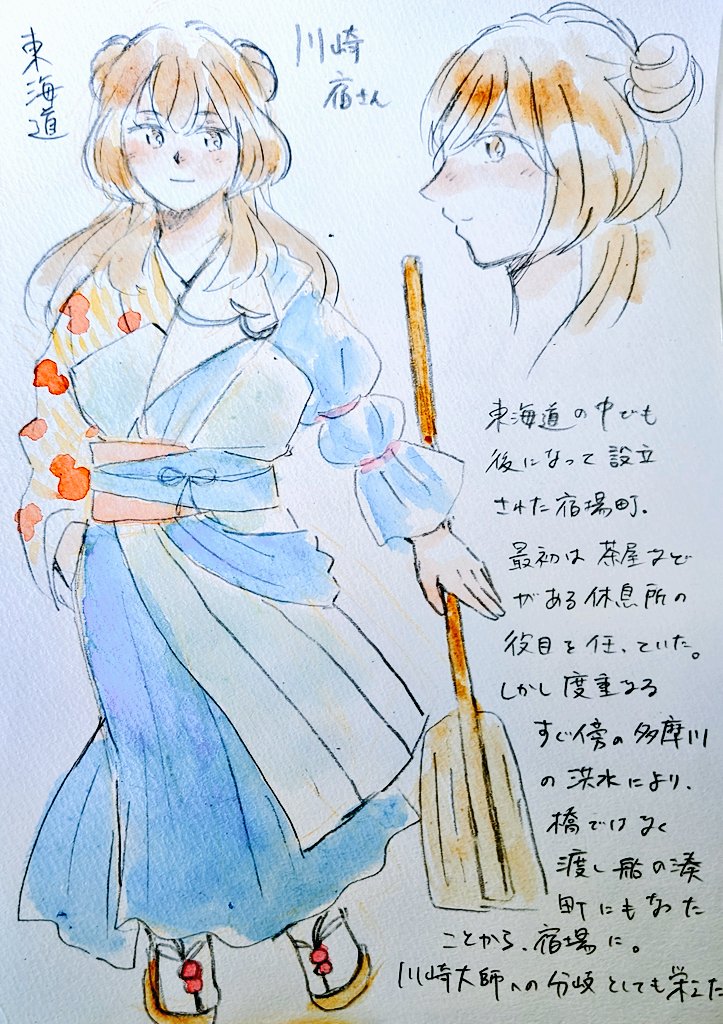 東海道
川崎
宿さん
東海道の中でも
後になって設立
された宿場町。
最初は茶屋など
がある休息所の
役目を任っていた。
しかし度重なる
すぐ傍の多摩川
の洪水により、
橋ではなく
渡し船の湊
町にもなった
ことから、宿場に。
川崎大師への分岐としても栄えた